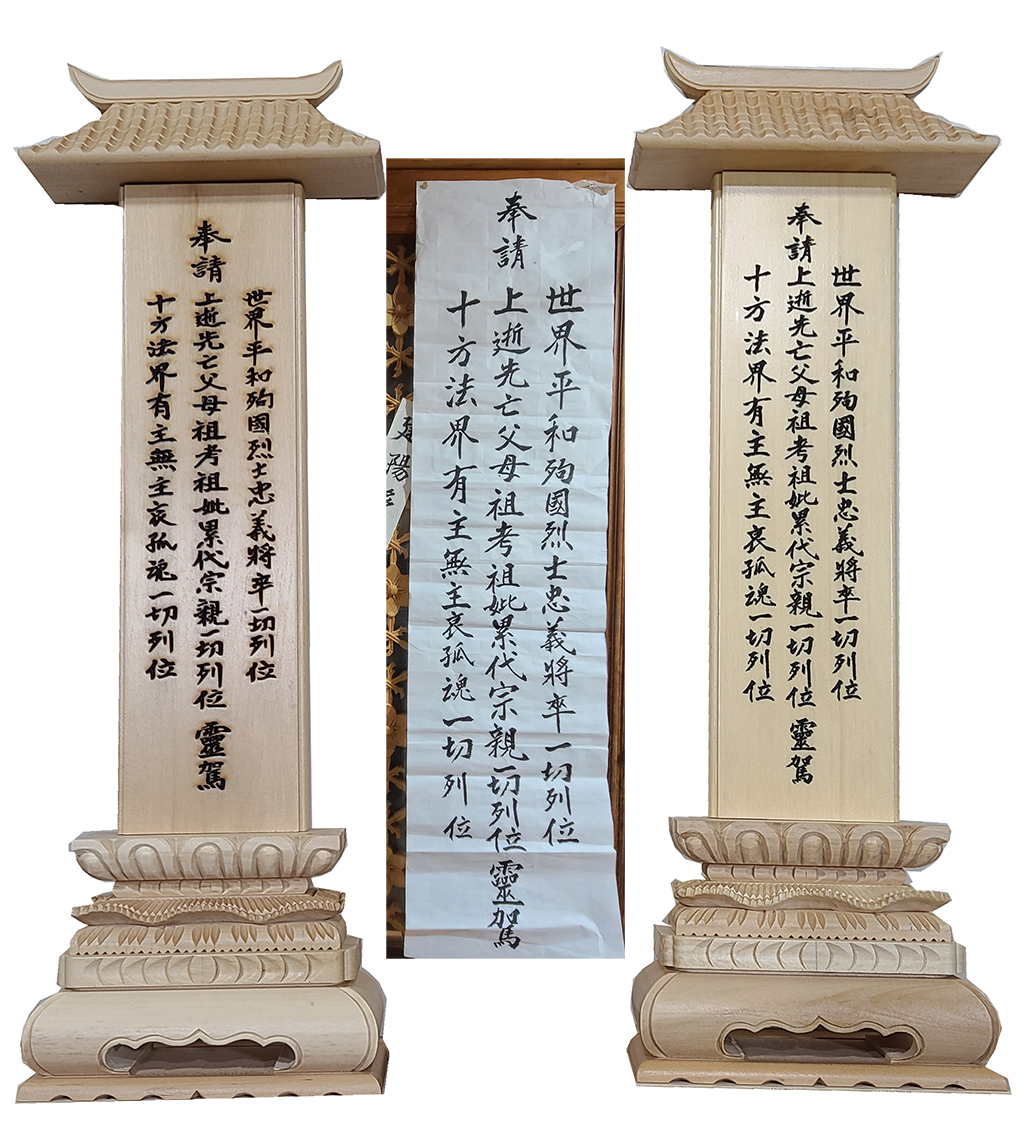 世界平和殉國烈士忠義將卒一切列位
奉請上逝先亡父母祖考祖妣累代宗親一切列位靈駕
十方法界有主無主哀孤魂一切列位
世界平和殉國烈士忠義將卒一切列位
奉請上逝先亡父母祖考祖妣累代宗親一切列位靈駕
十方法界有主無主哀孤魂一切列位
世界平和殉國烈士忠義將卒一切列位
奉請上逝先亡父母祖考祖妣累代宗親一切列位靈駕
十方法界有主無主哀孤魂一切列位